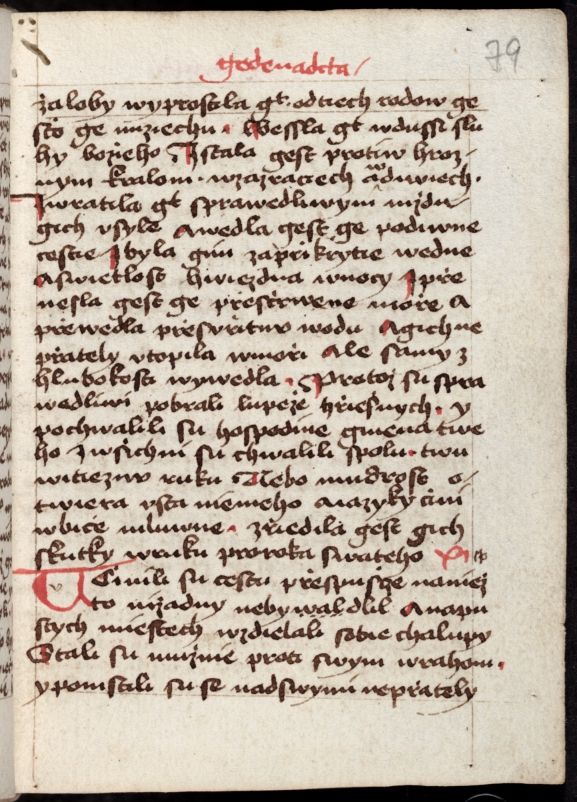 gedenadcta
79
zaloby wyprostila gt· odtiech rodow ge
sto ge nuziechu · Wessla gt wdussi slu
hy bozieho Istala gest protiw hroz
nym kralom · wzazraciech adiwiech ·
Iwratila gt sprawedliwym mzdu
gich vsyle Awedla gest ge podiwne
cestie Ibyla gim zaprikrytie wedne
Aswietlost hwiezdna wnocy Ipře
nesla gest ge přestrwene moře A
přewedla přesvritnu wodu Agichne
přately vtopila wmoři Ale samy z
hlubokosti wywedla · Protoz su spra
wedliwi pobrali lupeze hřiesnych · y
pochwalili su hospodine gmena twe
ho Iwsichni su chwalili spolu · twu
witieznu ruku Nebo mudrost o
twiera vsta niemeho Aiazyky cini
wbice mluwne · Zřiedila gest gich
skutky wruku proroka swateho XI
Vcinili su cestu přespusge naniez
to nizadny nebywal dlil Anapu
stych miestech wzdielali sobie chalupy
Stali su muznie proti swym wrahom ·
ypomstili su se nadswymi nepřately